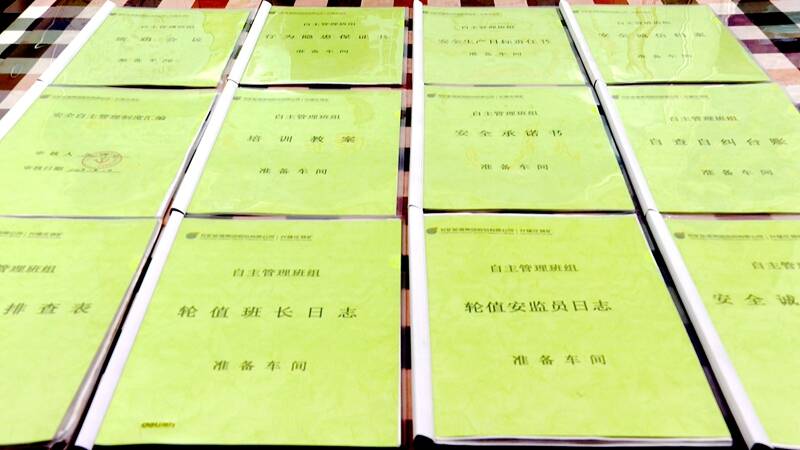 自主管理班组
班前会议
准备车间
自主管理班组
行为隐患保证书
准备车间
自主管理班组
安全生产目标责任书
准备车间
自主管理班组
安全诚信档案
准备车间
安全自主管理制度汇编
审核人
审核日期
自主管理班组
培训教案
准备车间
自主管理班组
安全承诺书
准备车间
自主管理班组
自查自纠台账
准备车间
班组
排查表
自主管理班组
轮值班长日志
准备车间
deli
自主管理班组
轮值安监员日志
准备车间
自主管
安全诚
准备